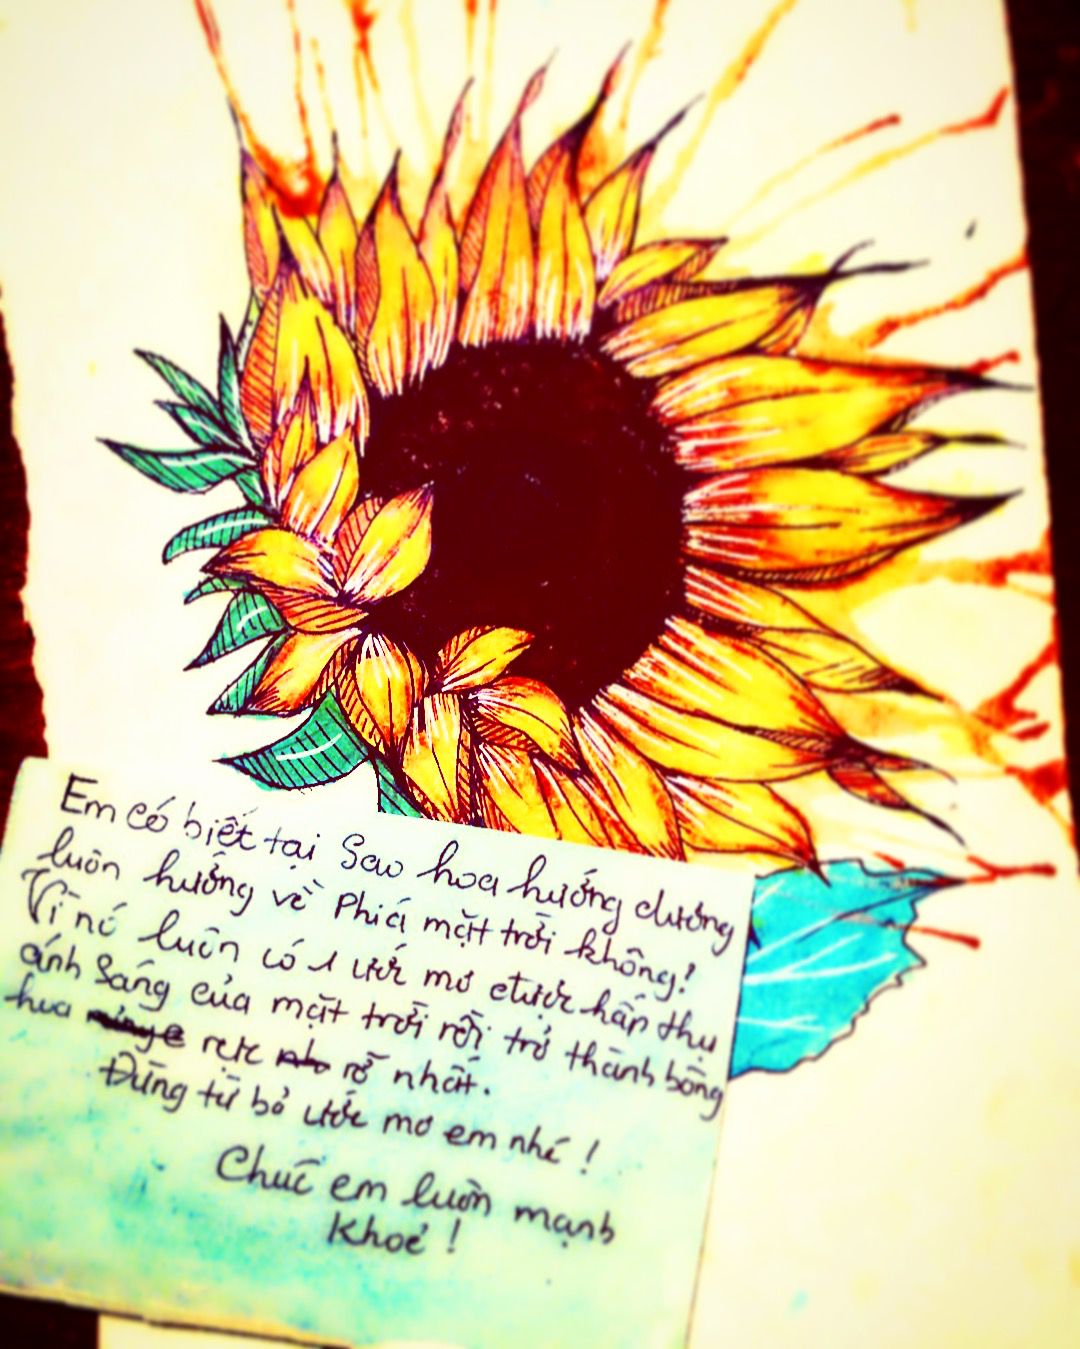 Em có biết tại sao hoa hướng dương
luôn hướng về phiá mặt trời không!
Vì nó luôn có 1 ước mơ được hấp thụ
ánh sáng của mặt trời rồi trở thành bông
hoa rực rỡ nhất.
Đừng từ bỏ ước mơ em nhé!
Chúc em luôn mạnh
khoẻ!